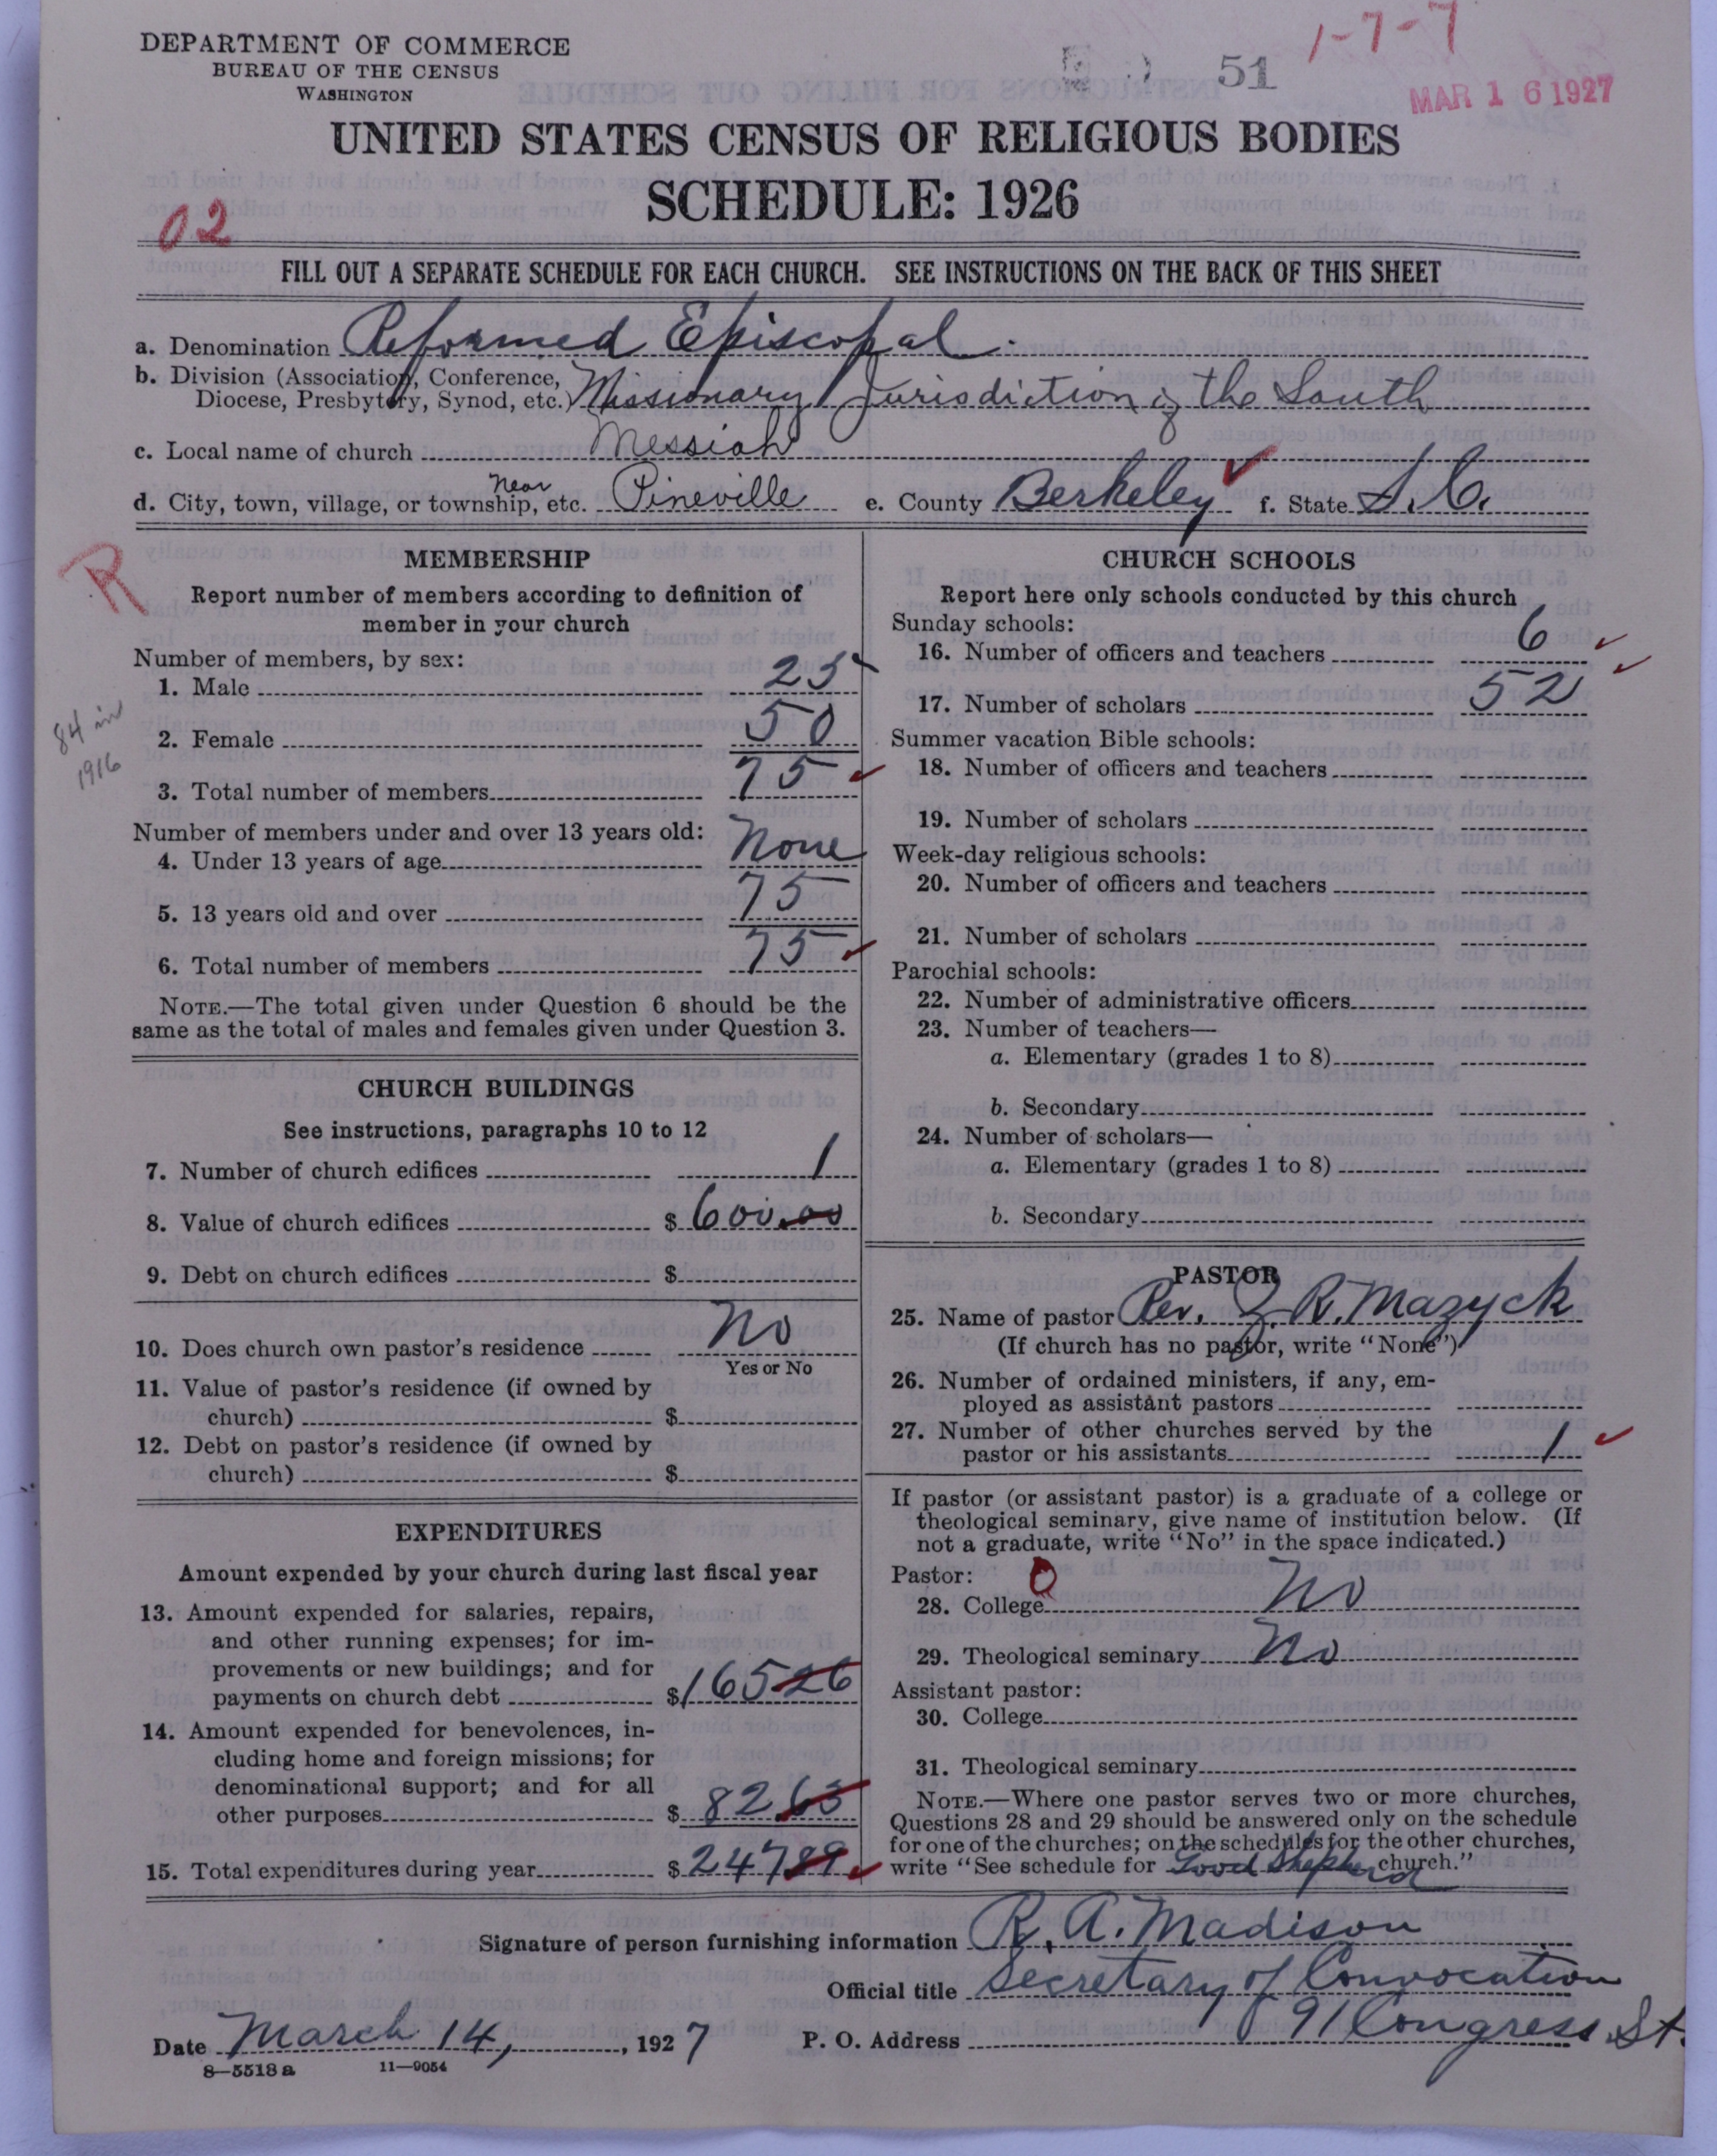 DEPARTMENT OF COMMERCE
BUREAU OF THE CENSUS
WASHINGTON
51
1-7-7
MAR 16 1927
UNITED STATES CENSUS OF RELIGIOUS BODIES
SCHEDULE: 1926
02
FILL OUT A SEPARATE SCHEDULE FOR EACH CHURCH. SEE INSTRUCTIONS ON THE BACK OF THIS SHEET
a. Denomination Reformed Episcopal.
b. Division (Association, Conference, Diocese, Presbytery, Synod, etc.) Missionary Jurisdiction of the South
c. Local name of church Messiah
d. City, town, village, or township, etc. Near Pineville e. County Berkeley f. State S.C.
R
84 in
1916
MEMBERSHIP
Report number of members according to definition of
member in your church
Number of members, by sex:
1. Male 25
2. Female 50
3. Total number of members 75
Number of members under and over 13 years old:
4. Under 13 years of age None
5. 13 years old and over 75
6. Total number of members 75
NOTE.—The total given under Question 6 should be the
same as the total of males and females given under Question 3.
CHURCH BUILDINGS
See instructions, paragraphs 10 to 12
7. Number of church edifices 1
8. Value of church edifices $ 600.00
9. Debt on church edifices $
10. Does church own pastor's residence No
Yes or No
11. Value of pastor's residence (if owned by
church) $
12. Debt on pastor's residence (if owned by
church) $
EXPENDITURES
Amount expended by your church during last fiscal year
13. Amount expended for salaries, repairs,
and other running expenses; for im-
provements or new buildings; and for
payments on church debt $ 165 26
14. Amount expended for benevolences, in-
cluding home and foreign missions; for
denominational support; and for all
other purposes $ 82.63
15. Total expenditures during year $ 247 89
CHURCH SCHOOLS
Report here only schools conducted by this church
Sunday schools:
16. Number of officers and teachers 6
17. Number of scholars 52
Summer vacation Bible schools:
18. Number of officers and teachers
19. Number of scholars
Week-day religious schools:
20. Number of officers and teachers
21. Number of scholars
Parochial schools:
22. Number of administrative officers
23. Number of teachers—
a. Elementary (grades 1 to 8)
b. Secondary
24. Number of scholars—
a. Elementary (grades 1 to 8)
b. Secondary
PASTOR
25. Name of pastor Rev. Z. R. Mazyck
(If church has no pastor, write "None")
26. Number of ordained ministers, if any, em-
ployed as assistant pastors
27. Number of other churches served by the
pastor or his assistants 1
If pastor (or assistant pastor) is a graduate of a college or
theological seminary, give name of institution below. (If
not a graduate, write "No" in the space indicated.)
Pastor: 0
28. College No
29. Theological seminary No
Assistant pastor:
30. College
31. Theological seminary
NOTE.—Where one pastor serves two or more churches,
Questions 28 and 29 should be answered only on the schedule
for one of the churches; on the schedules for the other churches,
write "See schedule for Good Shepherd church."
Signature of person furnishing information R. A. Madison
Official title Secretary of Convocation
Date March 14, 1927 P. O. Address 91 Congress St.
8—5518 a 11—9054